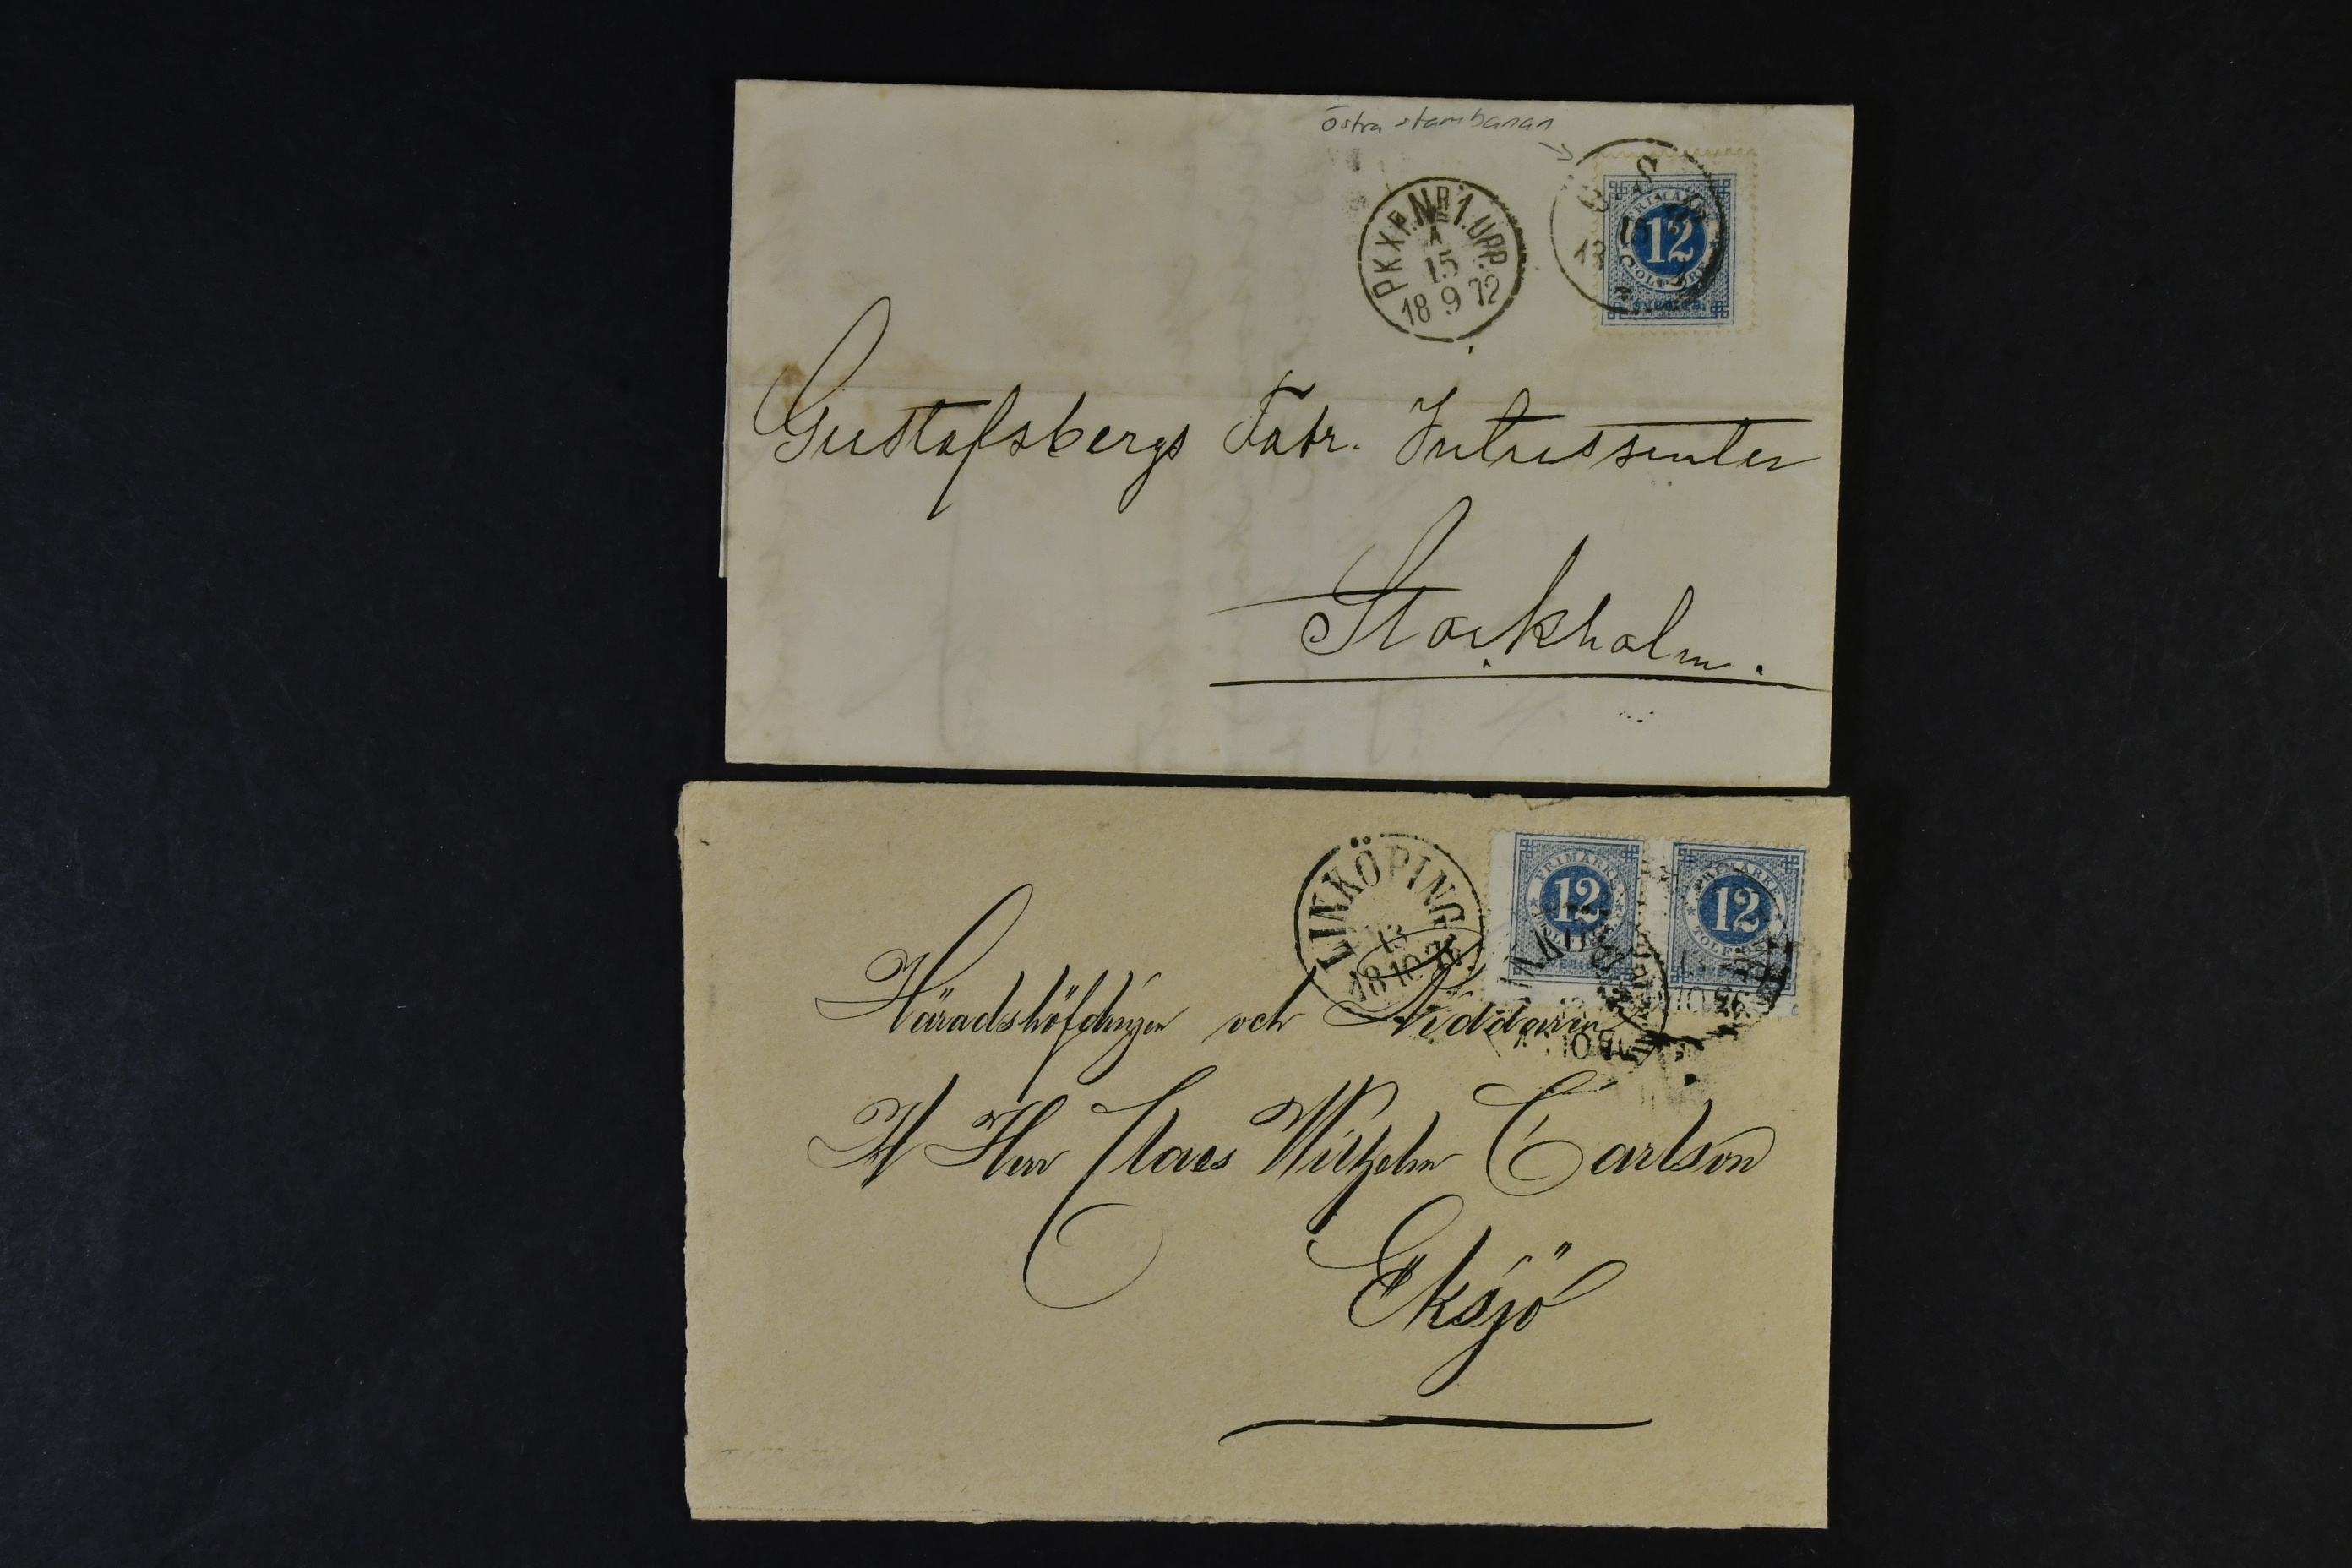 östra stambanan
PKXP.NR 1.UPP
15
18 9 72
FRIMÄRKE
12
TOLF ÖRE
SVERIGE
Gustafsbergs Fabr. Intressenter
Stockholm.
LINKÖPING
13
18 10
FRIMÄRKE
12
FRIMÄRKE
12
TOLF
Häradshöfdingen och Riddaren
H Herr Claes Wilhelm Carlson
Eksjö